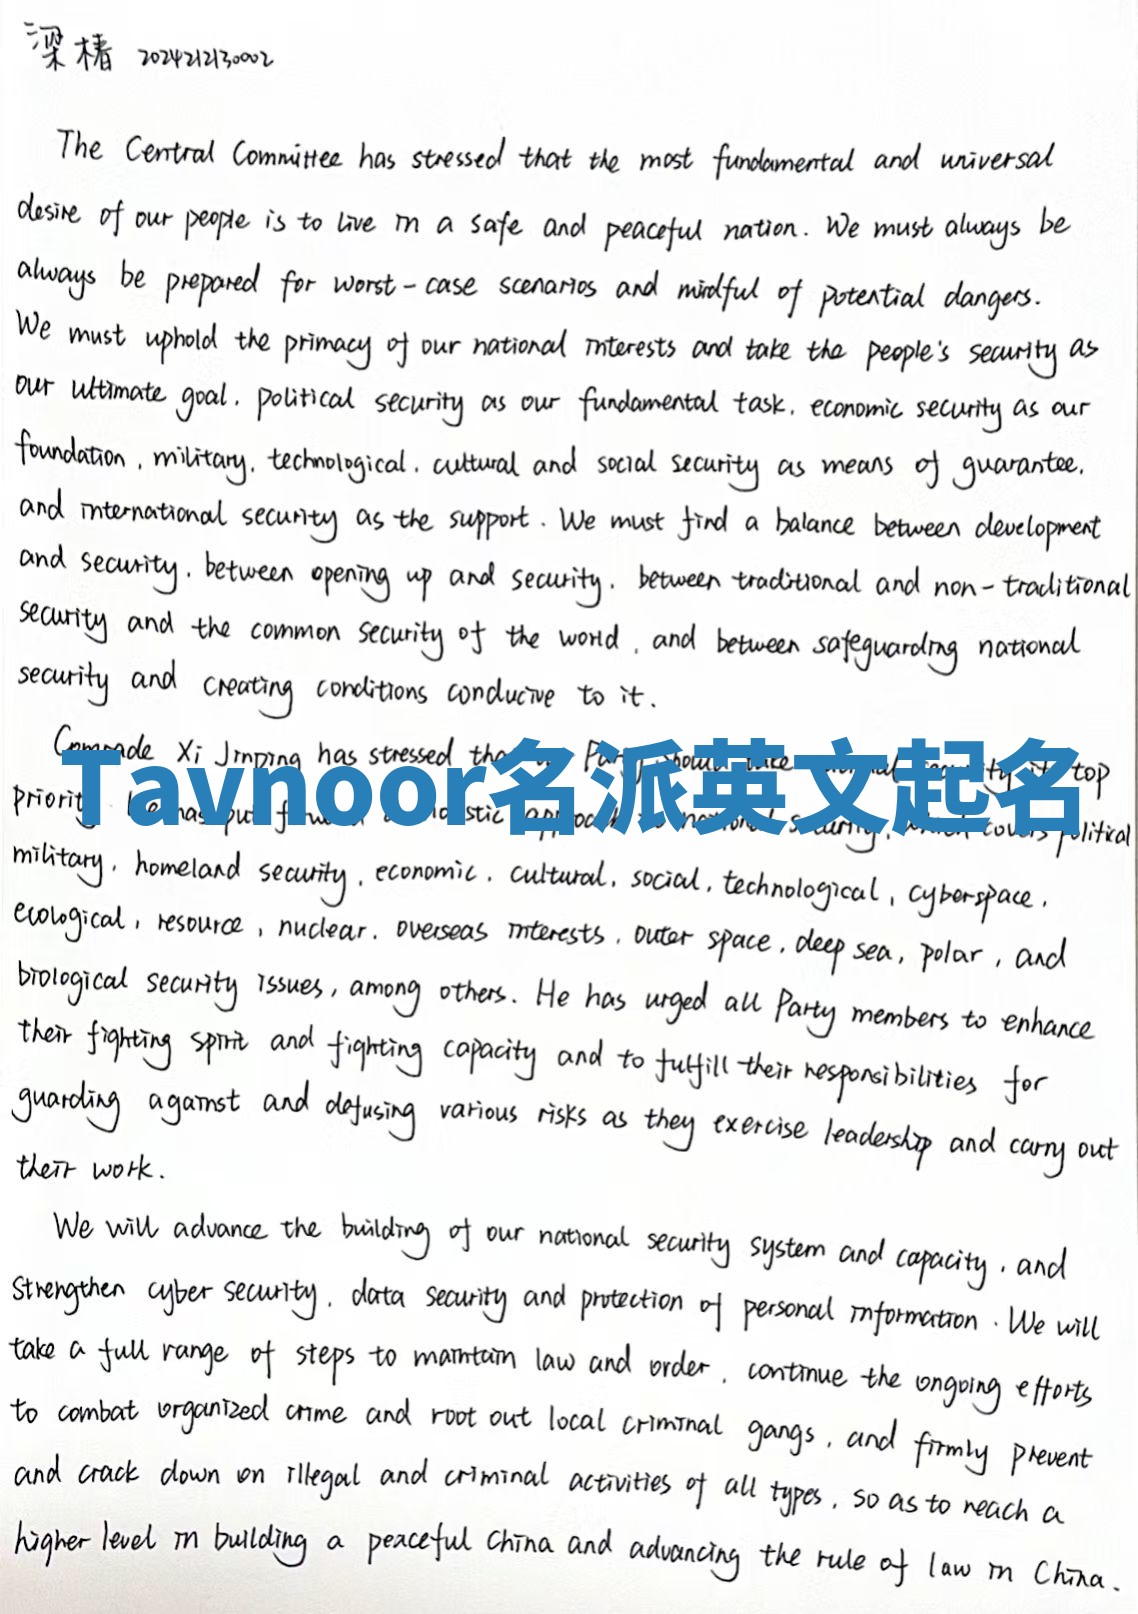 梁椿 2024212130002
The Central Committee has stressed that the most fundamental and universal
desire of our people is to live in a safe and peaceful nation. We must always be
always be prepared for worst-case scenarios and mindful of potential dangers.
We must uphold the primacy of our national interests and take the people's security as
our ultimate goal, political security as our fundamental task, economic security as our
foundation, military, technological, cultural and social security as means of guarantee,
and international security as the support. We must find a balance between development
and security, between opening up and security, between traditional and non-traditional
security and the common security of the world, and between safeguarding national
security and creating conditions conducive to it.
Comrade Xi Jinping has stressed Party should top
Tavnoor名派英文起名
priority has put approach national security, which covers political
military, homeland security, economic, cultural, social, technological, cyberspace,
ecological, resource, nuclear, overseas interests, outer space, deep sea, polar, and
biological security issues, among others. He has urged all Party members to enhance
their fighting spirit and fighting capacity and to fulfill their responsibilities for
guarding against and defusing various risks as they exercise leadership and carry out
their work.
We will advance the building of our national security system and capacity, and
strengthen cyber security, data security and protection of personal information. We will
take a full range of steps to maintain law and order, continue the ongoing efforts
to combat organized crime and root out local criminal gangs, and firmly prevent
and crack down on illegal and criminal activities of all types, so as to reach a
higher level in building a peaceful China and advancing the rule of law in China.